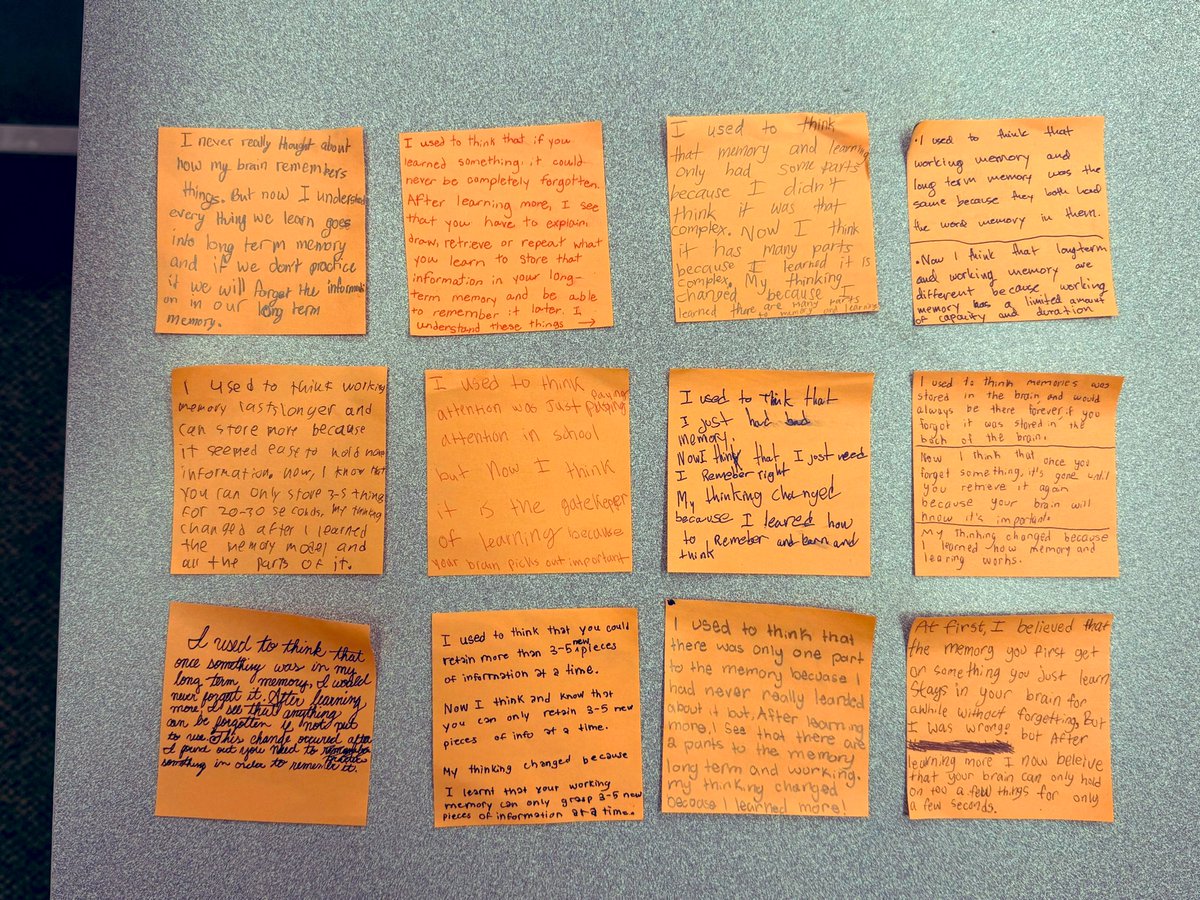 I never really thought about
how my brain remembers
things. But now I understand
every thing we learn goes
into long term memory
and if we don't practice
it we will forget the informati
on in our long term
memory.
I used to think that if you
learned something it could
never be completely forgotten.
After learning more, I see
that you have to explain,
draw, retrieve or repeat what
you learn to store that
information in your long-
term memory and be able
to remember it later. I
understand these things →
I used to think
that memory and learning
only had some parts
because I didn't
think it was that
complex. Now I think
it has many parts
because I learned it is
complex. My thinking
changed because I
learned there are many parts
to memory and learning
• I used to think that
working memory and
long term memory was the
same because they both had
the word memory in them.
• Now I think that longterm
and working memory are
different because working
memory has a limited amount
of capacity and duration
I used to think working
memory lasts longer and
can store more because
it seemed easy to hold more
information. now, I know that
you can only store 3-5 thing
For 20-30 seconds. my thinking
changed after I learned
the memory model and
all the parts of it.
I used to think
attention was just paying
attention in school
but Now I think
it is the gatekeeper
of learning because
your brain picks out important
I used to think that
I just had bad
memory.
Now I think that, I just need
I Remeber right
My thinking changed
because I leared how
to Remeber and learn and
think
I used to think memories was
stored in the brain and would
always be there forever if you
forgot it was stored in the
back of the brain.
Now I think that once you
forget something, it's gone until
you retrieve it again
because your brain will
know it's important.
My thinking changed because
I learned how memory and
learing works.
I used to think that
once something was in my
long-term memory, I would
never forget it. After learning
more, I see that anything
can be forgotten if not put
to use. This change occured after
I found out you need to practice
something in order to remember it.
I used to think that you could
retain more than 3-5 new pieces
of information at a time.
Now I think and know that
you can only retain 3-5 new
pieces of info at a time.
My thinking changed because
I learnt that your working
memory can only grasp 3-5 new
pieces of information at a time.
I used to think that
there was only one part
to the memory becuase I
had never really learded
about it but, After learning
more, I see that there are
2 parts to the memory
long term and working.
my thinking changed
because I learned more!
At first, I believed that
the memory you first get
on something you Just learn
stays in your brain for
awhile without forgetting, But
I was wrong! but After
learning more I now beleive
that your brain can only hold
on too a few things for only
a few seconds.